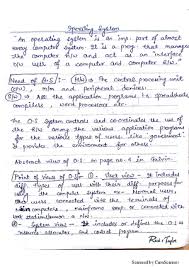 Operating System
"An operating system" is an imp. part of almost
every computer system. It is a prog. that manages
the computer H/W and act as an interface
b/w users of computer and computer H/W.
Need of O.S :- (H/W) → The central processing unit
(CPU), m/m and peripheral devices.
(S/W) → All the application programs i.e. spreadsheets,
compilers, word processor etc.
The O.S controls and co-ordinates the use of
the H/W among the various application programs
for the various types of users. Like government
it provides the environment for others.
Abstract view of O.S on page no. 4 in Galvin.
Point of Views of O.S :- ① User view - It includes
diff. types of uses with their diff. purposes
users connected with the terminals of
main computers, connected with
② System view - It includes or defines the O.S as
resource allocator and control program.
Scanned by CamScanner